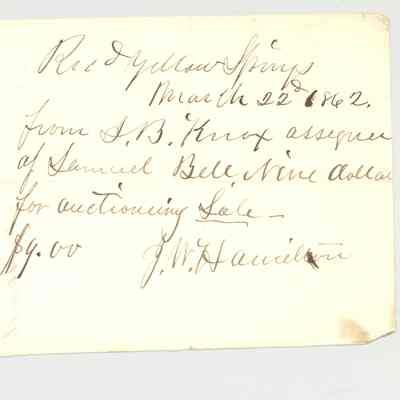 Rec'd Yellow Springs
March 22d 1862.
from S. B. Knox assignee
of Samuel Bell Nine dollar
for auctioning Sale —
$9.00 J. W. Hamilton